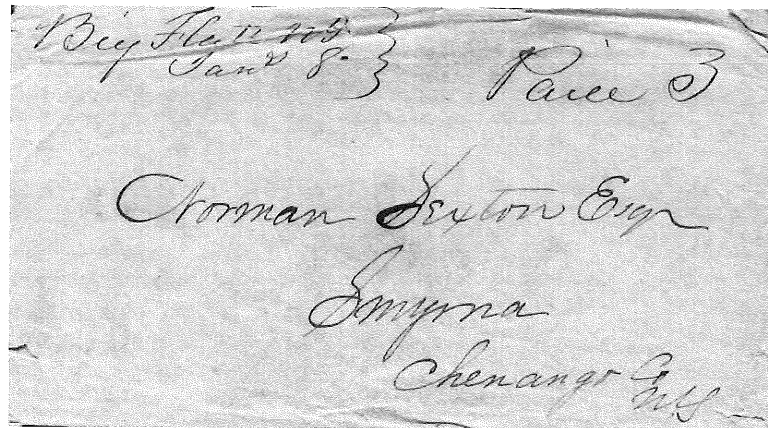 Big Flatts N.Y.
Jany 8.
Paid 3
Norman Sexton Esqr
Smyrna
Chenango Co
N.Y.